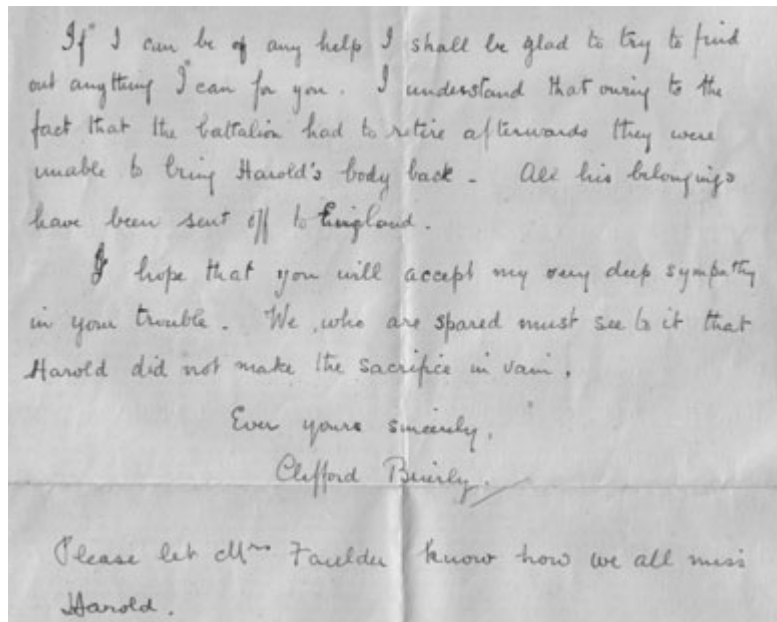 If I can be of any help I shall be glad to try to find
out anything I can for you. I understand that owing to the
fact that the battalion had to retire afterwards they were
unable to bring Harold's body back. All his belongings
have been sent off to England.
I hope that you will accept my very deep sympathy
in your trouble. We, who are spared must see to it that
Harold did not make the sacrifice in vain.
Ever yours sincerely,
Clifford Brierly.
Please let Mrs Faulder know how we all miss
Harold.